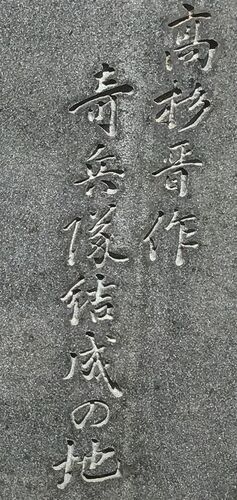 高杉晋作
奇兵隊結成の地